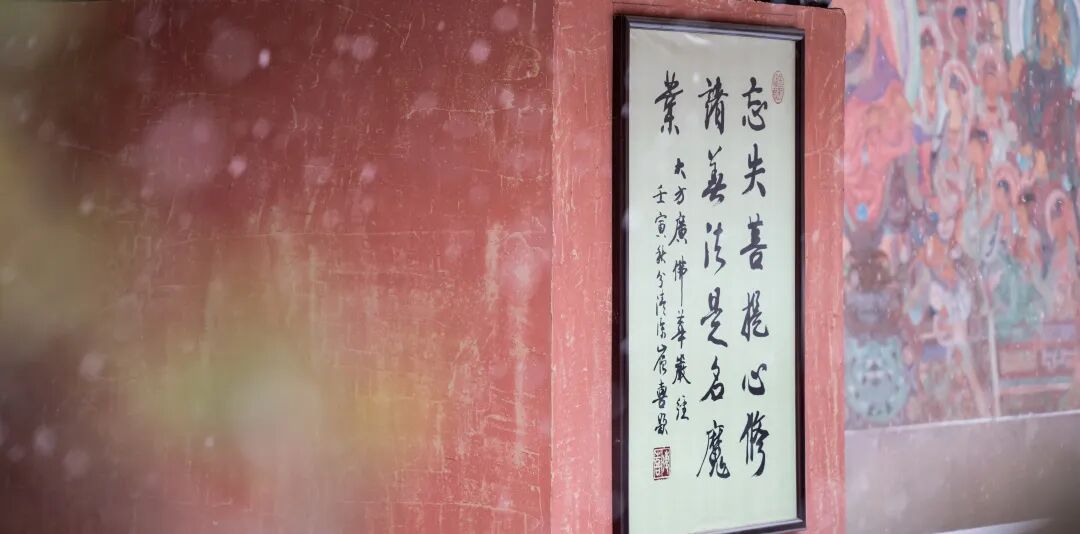 忘失菩提心修
諸善法是名魔
業
大方廣佛華嚴經
壬寅秋分清涼崇喜題